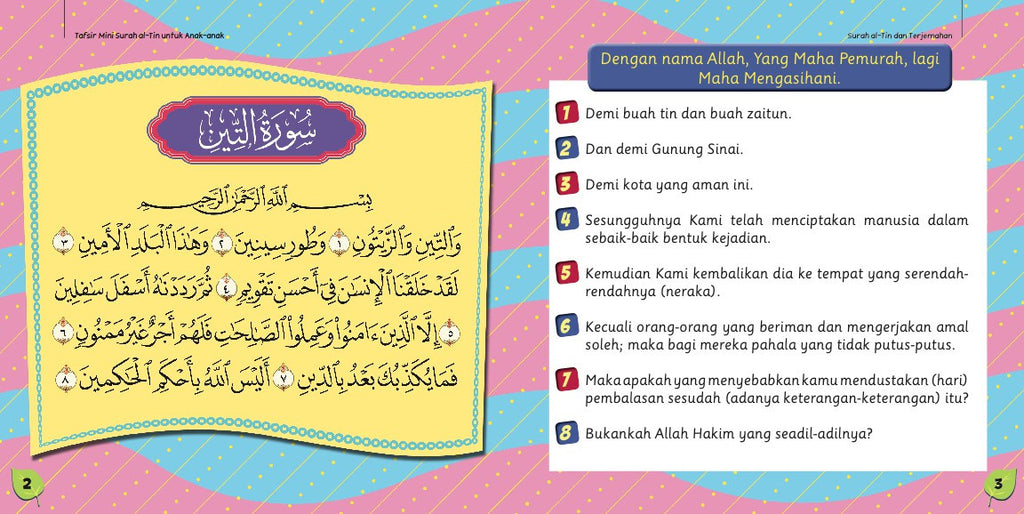 Tafsir Mini Surah al-Tin untuk Anak-anak
سُورَةُ التِّينِ
بِسْمِ ٱللَّهِ ٱلرَّحْمَٰنِ ٱلرَّحِيمِ
وَٱلتِّينِ وَٱلزَّيْتُونِ ١ وَطُورِ سِينِينَ ٢ وَهَٰذَا ٱلْبَلَدِ ٱلْأَمِينِ ٣
لَقَدْ خَلَقْنَا ٱلْإِنسَٰنَ فِىٓ أَحْسَنِ تَقْوِيمٍ ٤ ثُمَّ رَدَدْنَٰهُ أَسْفَلَ سَٰفِلِينَ
٥ إِلَّا ٱلَّذِينَ ءَامَنُوا۟ وَعَمِلُوا۟ ٱلصَّٰلِحَٰتِ فَلَهُمْ أَجْرٌ غَيْرُ مَمْنُونٍ ٦
فَمَا يُكَذِّبُكَ بَعْدُ بِٱلدِّينِ ٧ أَلَيْسَ ٱللَّهُ بِأَحْكَمِ ٱلْحَٰكِمِينَ ٨
2
Surah al-Tin dan Terjemahan
Dengan nama Allah, Yang Maha Pemurah, lagi
Maha Mengasihani.
1 Demi buah tin dan buah zaitun.
2 Dan demi Gunung Sinai.
3 Demi kota yang aman ini.
4 Sesungguhnya Kami telah menciptakan manusia dalam
sebaik-baik bentuk kejadian.
5 Kemudian Kami kembalikan dia ke tempat yang serendah-
rendahnya (neraka).
6 Kecuali orang-orang yang beriman dan mengerjakan amal
soleh; maka bagi mereka pahala yang tidak putus-putus.
7 Maka apakah yang menyebabkan kamu mendustakan (hari)
pembalasan sesudah (adanya keterangan-keterangan) itu?
8 Bukankah Allah Hakim yang seadil-adilnya?
3